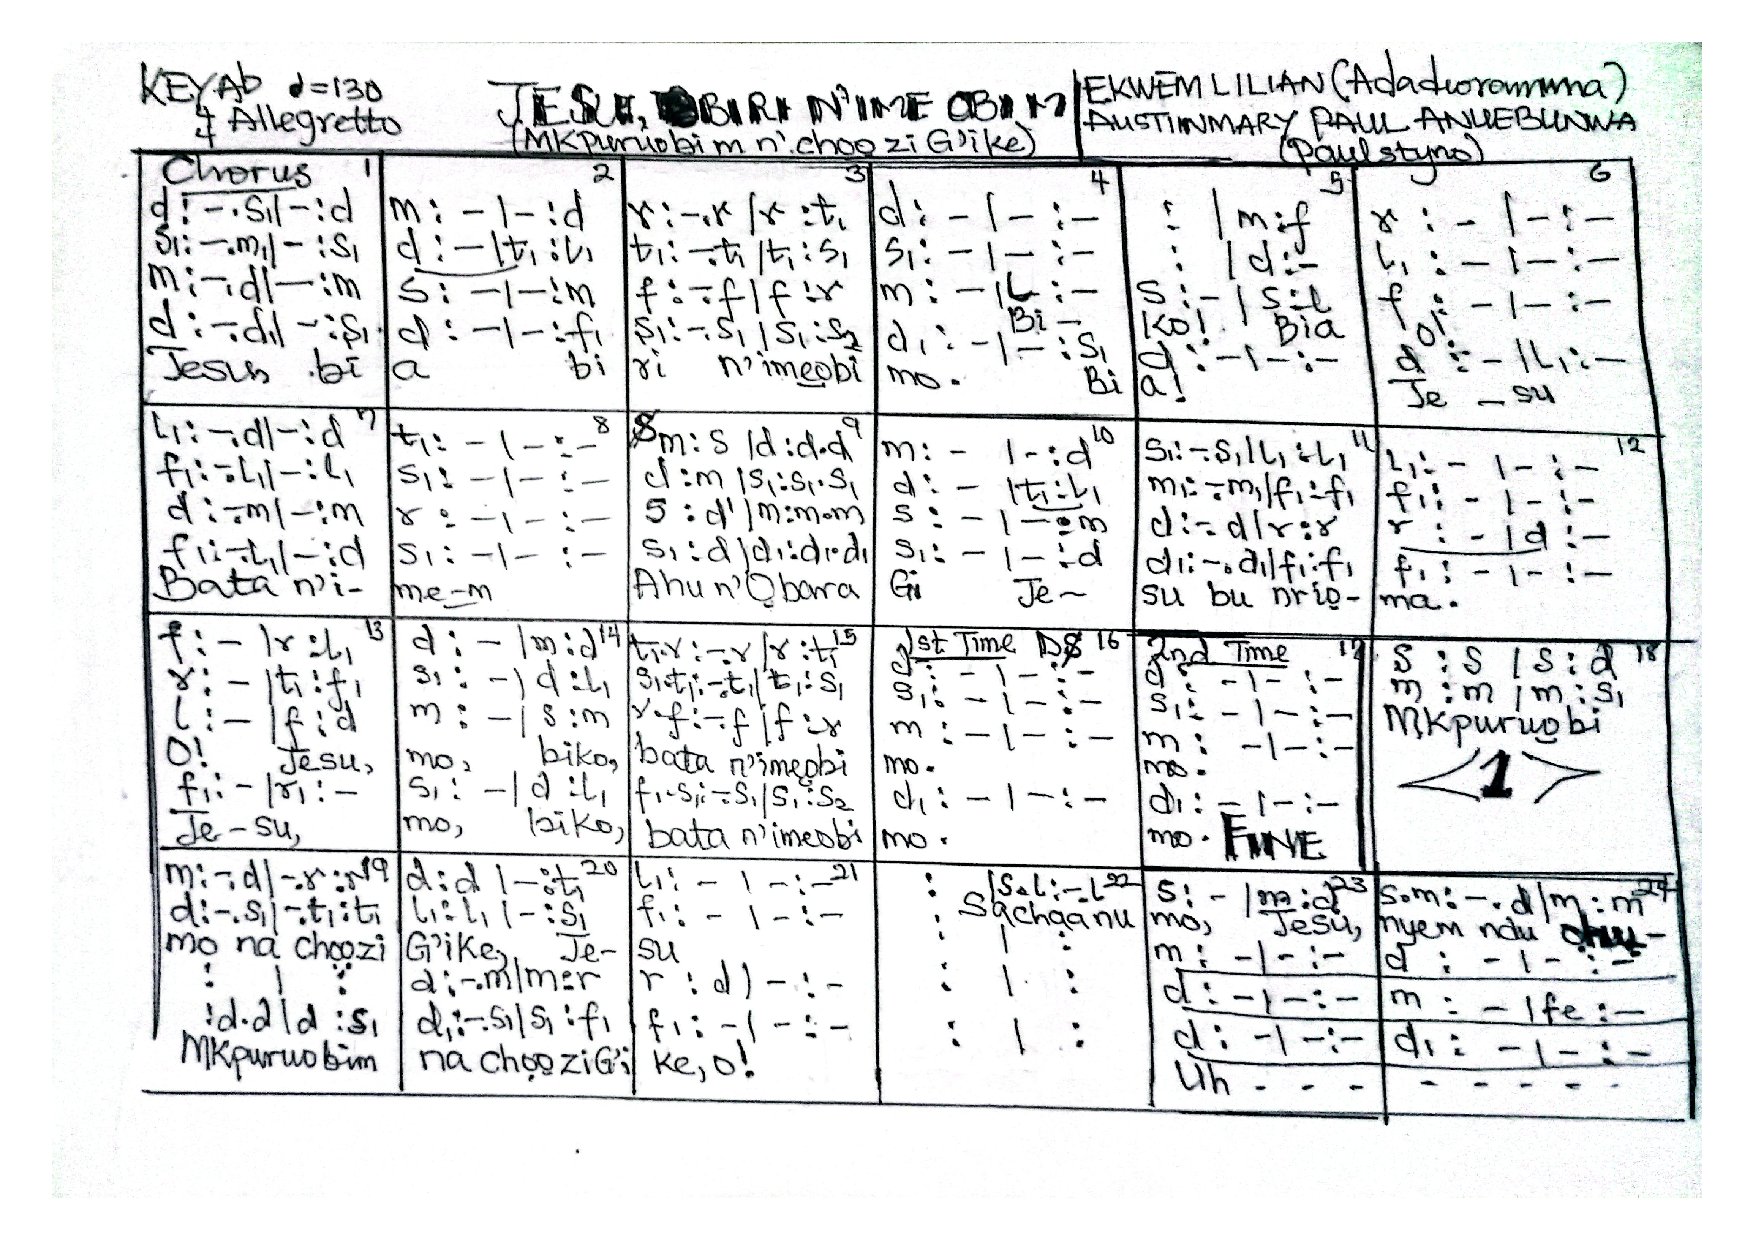 KEY Ab d=130
4/4 Allegretto
JESU, BIRI N'IME OBI M
(MKpuruobi m n'choo zi G'ike)
EKWEM LILIAN (Adaduoramma)
AUSTINMARY PAUL ANUEBUNWA
(Paulstyno)
Chorus 1
d:-.s₁|-:d
s₁:-.m₁|-:s₁
m:-.d|-:m
d:-.d₁|-:s₁
Jesus bi
2
m:-|-:d
d:-|t₁:l₁
s:-|-:m
d:-|-:f₁
a bi
3
r:-.r|r:t₁
t₁:-.t₁|t₁:s₁
f:-.f|f:r
s₁:-.s₁|s₁:s₂
ri n'imeobi
4
d:-|-:-
s₁:-|-:-
m:-|l:-
Bi-
d₁:-|-:s₁
mo. Bi
5
: |m:f
: |d:-
s:-|s:l
Ko! Bia
d:-|-:-
a!
6
r:-|-:-
l₁:-|-:-
f:-|-:-
O!
d:-|l₁:-
Je - su
7
l₁:-.d|-:d
f₁:-.l₁|-:l₁
d:-.m|-:m
f₁:-.l₁|-:d
Bata n'i-
8
t₁:-|-:-
s₁:-|-:-
r:-|-:-
s₁:-|-:-
me-m
9
m:s|d:d.d
d:m|s₁:s₁.s₁
s:d'|m:m.m
s₁:d|d₁:d₁.d₁
Ahu n'Ọbara
10
m:-|-:d
d:-|t₁:l₁
s:-|-:m
s₁:-|-:d
Gi Je-
11
s₁:-.s₁|l₁:l₁
m₁:-.m₁|f₁:f₁
d:-.d|r:r
d₁:-.d₁|f₁:f₁
su bu nriọ-
12
l₁:-|-:-
f₁:-|-:-
r:-|d:-
f₁:-|-:-
ma.
13
f:-|r:l₁
r:-|t₁:f₁
l:-|f:d
O! Jesu,
f₁:-|r₁:-
Je-su,
14
d:-|m:d
s₁:-|d:l₁
m:-|s:m
mo, biko,
s₁:-|d:l₁
mo, biko,
15
t₁.r:-.r|r:t₁
s₁.t₁:-.t₁|t₁:s₁
r.f:-.f|f:r
bata n'imeọbi
f₁.s₁:-.s₁|s₁:s₂
bata n'imeobi
1st Time D$ 16
d:-|-:-
s₁:-|-:-
m:-|-:-
mo.
d₁:-|-:-
mo.
2nd Time 17
d:-|-:-
s₁:-|-:-
m:-|-:-
mo.
d₁:-|-:-
mo. FINE
18
s:s|s:d
m:m|m:s₁
MKpuruọbi
1
19
m:-.d|-.r:r
d:-.s₁|-.t₁:t₁
mo na chọọzi
: | :
:d.d|d:s₁
MKpuruobim
20
d:d|-:t₁
l₁:l₁|-:s₁
G'ike, Je-
d:-.m|m:r
d₁:-.s₁|s₁:f₁
na chọọziG'i
21
l₁:-|-:-
f₁:-|-:-
su
r:d|-:-
f₁:-|-:-
ke, o!
22
: |s.l:-.l
Sachaanu
: | :
: | :
: | :
23
s:-|m:d
mo, Jesu,
m:-|-:-
d:-|-:-
d:-|-:-
Uh - - -
24
s.m:-.d|m:m
nyem ndu
d:-|-:-
m:-|fe:-
d₁:-|-:-
- - - - - -